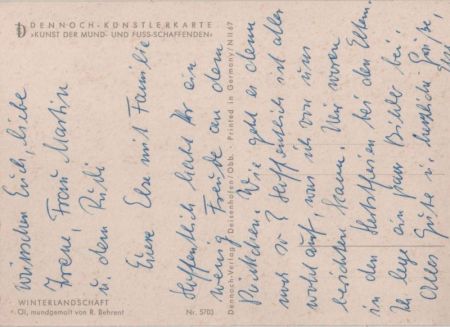 DENNOCH-KÜNSTLERKARTE
»KUNST DER MUND- UND FUSS-SCHAFFENDEN«
wünschen Euch, liebe
Irene, Frau Martin
u. dem Rudi
Eure Else mit Familie
Hoffentlich habt Ihr ein
wenig Freude an dem
Päckchen. Wie geht es denn
noch so? Hoffentlich ist alles
wohlauf, was ich von uns
berichten kann. Wir waren
in den Herbstferien bei den Eltern.
Ich lege ein paar Bilder bei.
Alles Gute u. herzliche Grüße,
Else
Dennoch-Verlag Deisenhofen/Obb. · Printed in Germany/N II 67
WINTERLANDSCHAFT
Öl, mundgemalt von R. Behrent
Nr. 5703